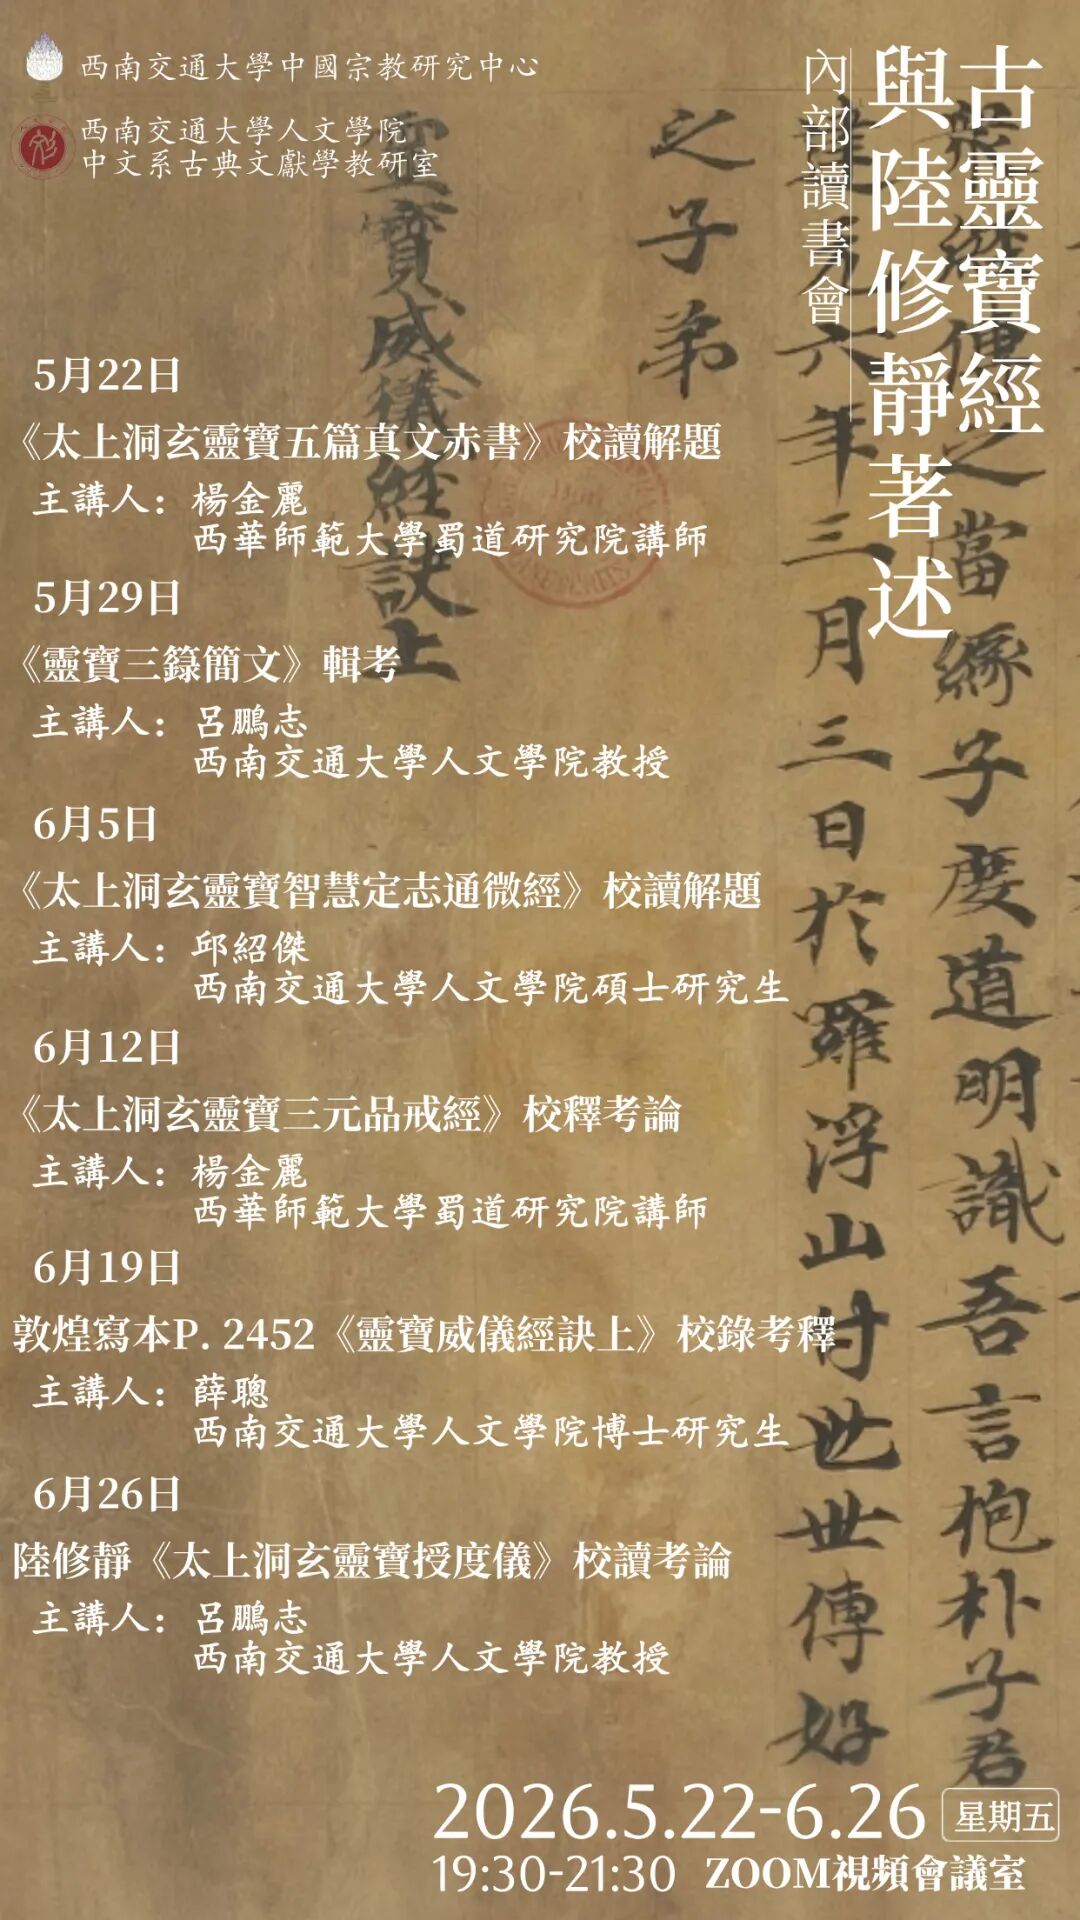 西南交通大學中國宗教研究中心
西南交通大學人文學院
中文系古典文獻學教研室
古靈寶經
與陸修靜著述
內部讀書會
5月22日
《太上洞玄靈寶五篇真文赤書》校讀解題
主講人：楊金麗
西華師範大學蜀道研究院講師
5月29日
《靈寶三籙簡文》輯考
主講人：呂鵬志
西南交通大學人文學院教授
6月5日
《太上洞玄靈寶智慧定志通微經》校讀解題
主講人：邱紹傑
西南交通大學人文學院碩士研究生
6月12日
《太上洞玄靈寶三元品戒經》校釋考論
主講人：楊金麗
西華師範大學蜀道研究院講師
6月19日
敦煌寫本P. 2452《靈寶威儀經訣上》校錄考釋
主講人：薛聰
西南交通大學人文學院博士研究生
6月26日
陸修靜《太上洞玄靈寶授度儀》校讀考論
主講人：呂鵬志
西南交通大學人文學院教授
2026.5.22-6.26 星期五
19:30-21:30 ZOOM視頻會議室
經傳之當緣子度道明識吾言抱朴子君
建元六年三月三日於羅浮山付世世傳好
之子弟
靈寶威儀經訣上